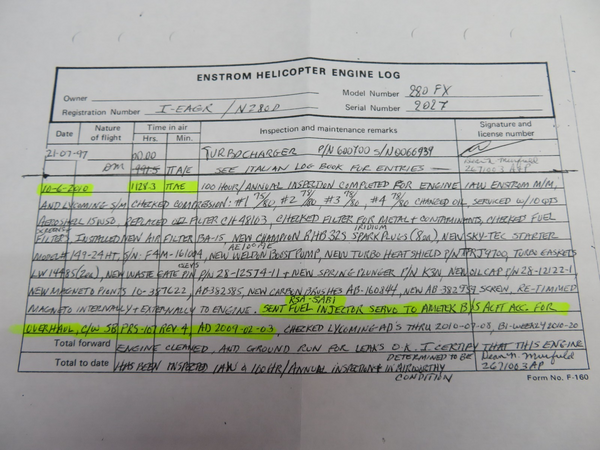 ENSTROM HELICOPTER ENGINE LOG
Owner
Model Number 280 FX
Registration Number I-EAGR / N280D
Serial Number 2027
Date
Nature of flight
Time in air
Hrs. Min.
Inspection and maintenance remarks
Signature and license number
21-07-97 00.00 TURBOCHARGER P/N 600700 S/N
TTA/E SEE ITALIAN LOG BOOK FOR ENTRIES
2671003 AP
10-6-2010 1128.3 TTAE 100 HOUR/ANNUAL INSPECTION COMPLETED FOR ENGINE IAW ENSTROM M/M,
AND LYCOMING S/M. CHECKED COMPRESSION: #1 75/80, #2 /80 #3 /80, #4 78/80 CHANGED OIL, SERVICED W/10 QTS
AEROSHELL 15W50, REPLACED OIL FILTER CH48103, CHECKED FILTER FOR METAL + CONTAMINANTS, CHECKED FUEL
SCREENS IRIDIUM
FILTERS INSTALLED NEW AIR FILTER BA-15, NEW CHAMPION RHB32S SPARK PLUGS (8ea), NEW SKY-TEC STARTER
MODEL# 149-24HT, S/N: F4M-161004, NEW WELDON BOOST PUMP, NEW TURBO HEAT SHIELD P/N TURBO GASKETS
LW 14985 (2ea), NEW WASTE GATE P/N 28-12574-11 + NEW SPRING PLUNGER P/N K3N, NEW OIL CAP P/N 28-12122-1
NEW MAGNETO POINTS 10-387622, AB-382585, NEW CARBON BRUSHES AB-160844, NEW SCREW, RE-TIMED
RSA-5AB1
MAGNETO INTERNALLY + EXTERNALLY TO ENGINE. SENT FUEL INJECTOR SERVO TO AMETEK B&S ACFT ACC. FOR
OVERHAUL, C/W SB PRS-107 REV 4, AD 2009-02-03, CHECKED LYCOMING AD'S THRU 2010-07-08, BI-WEEKLY 2010-20
Total forward ENGINE CLEANED, AND GROUND RUN FOR LEAKS O.K. I CERTIFY THAT THIS ENGINE
Total to date HAS BEEN INSPECTED IAW A 100HR/ANNUAL INSPECTION + DETERMINED TO BE IN AIRWORTHY
CONDITION
2671003 AP
Form No. F-160